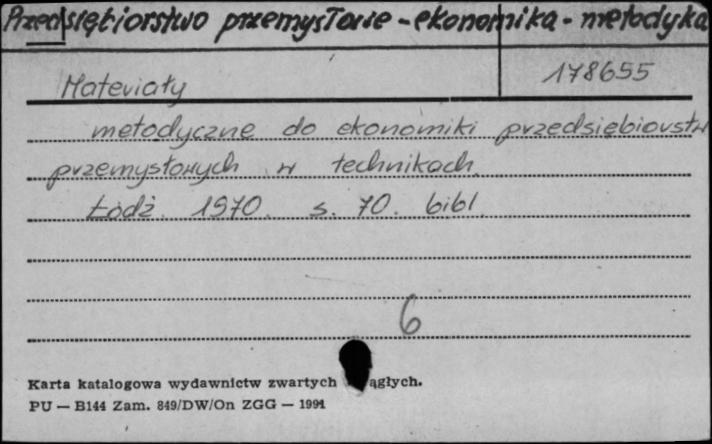 Przedsiębiorstwo przemysłowe - ekonomika - metodyka
178655
Materiały
metodyczne do ekonomiki przedsiębiorstw
przemysłowych w technikach
Łódź. 1970. s. 70. bibl.
6
Karta katalogowa wydawnictw zwartych ągłych.
PU — B144 Zam. 849/DW/On ZGG — 1991